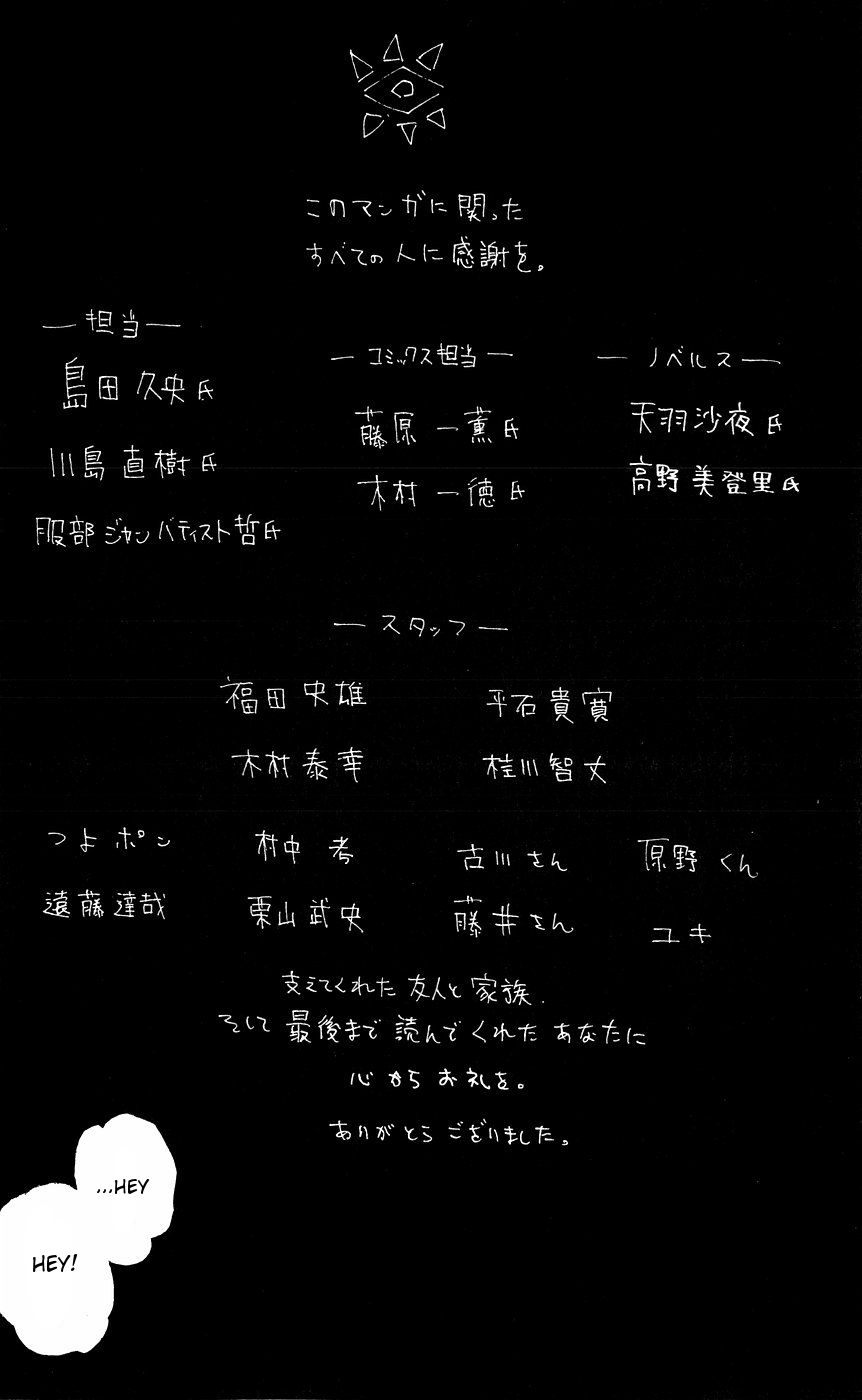 このマンガに関った
すべての人に感謝を。
—担当—
島田久央氏
川島直樹氏
服部ジャンバティスト哲氏
—コミックス担当—
藤原一薫氏
木村一徳氏
—ノベルス—
天羽沙夜氏
高野美登里氏
—スタッフ—
福田史雄 平石貴寛
木村泰幸 桂川智丈
つよポン 村中孝 古川さん 原野くん
遠藤達哉 栗山武史 藤井さん ユキ
支えてくれた友人と家族.
そして最後まで読んでくれたあなたに
心からお礼を。
ありがとうございました。
...HEY
HEY!